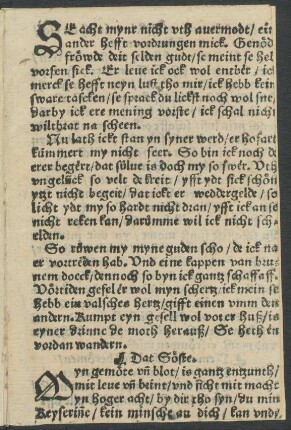 SE acht mynr nicht vth auermodt / ein
ander hefft vordrungen mick. Genöd
fröwde deit selden gudt / se meint se hel
vorsen sick. Er leue ick ock wol entbër / ick
merck se hefft neyn lust tho mir / ick hebb kein
sware tascken / se sprack du lickst noch wol sne,
darby ick ere mening vörste / ick schal nicht
wiltbrat na scheen.
Nu lath ickt stan yn syner werd / er hofart
kümmert my nicht seer. So bin ick noch de
erer begërt / dat sülue is doch my so seer. Vth
vngelück so velt de krert / ysst ydt sick schön
ytzt nicht begeit / dar ickt er weddergelde / so
licht ydt my so hardt nicht dran / ysst ick an se
nicht reken kan / darümme wil ick nicht sch-
elden.
So röwen my myne guden scho / de ick na
er vortreden hab. Vnd eine kappen van bru-
nem doeck / dennoch so byn ick gantz schaffaff.
Vörtiden gesel ër wol myn schertz / ick mein se
hebb ein valsches hertz / gifft einen vmm den
andern. Kumpt eyn gesell wol vor er Huß / is
eyner dinne de moth herauß / Se heth en
vordan wandern.
¶ Dat Söste.
MYn gemöte vñ blot / is gantz entzunth /
mit leue vñ beint / vnd sicht mit macht
yn hoger acht / by dir tho syn / du min
Keyserine / kein minsche au dich / kan vndy,